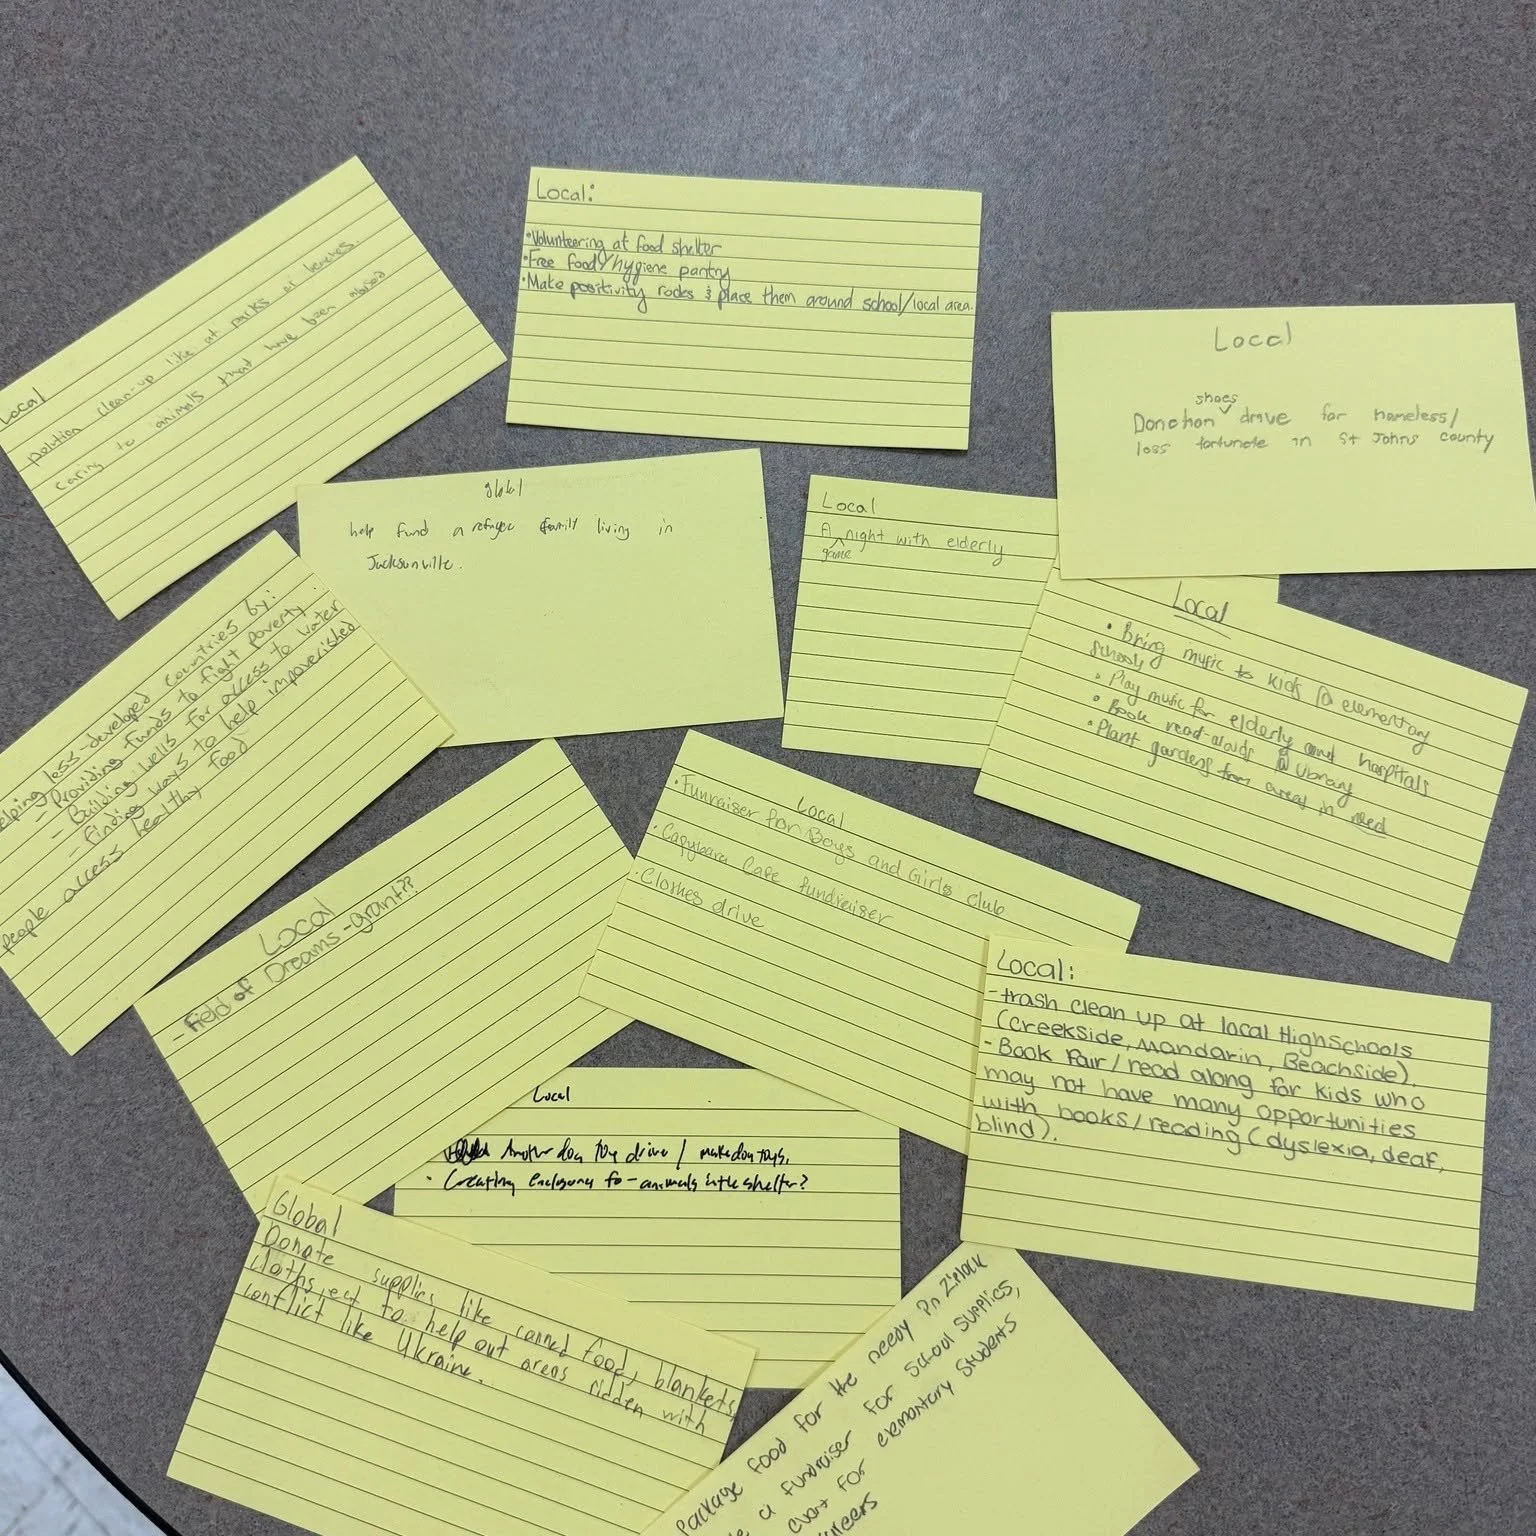 Local
polution clean-up like at parks or beaches.
caring to animals that have been abused
Local:
•Volunteering at food shelter
•Free food/hygiene pantry
•Make positivity rocks & place them around school/local area.
Local
shoes
Donation drive for homeless/
less fortunate in St Johns county
global
help fund a refugee family living in
Jacksonville.
Local
A night with elderly
game
Local
• Bring music to kids @ elementary
schools
• Play music for elderly and hospitals
• Book read-alouds @ library
• Plant gardens from areas in need
elping less-developed countries by:
- Providing funds to fight poverty
- Building wells for access to water
- Finding ways to help impoverished
people access healthy food
Local
- Field of Dreams -grant??
Local
•Funraiser for Boys and Girls club
•Capybara Cafe fundraiser
•Clothes drive
Local:
-trash clean up at local Highschools
(Creekside, Mandarin, Beachside).
- Book Fair/read along for kids who
may not have many opportunities
with books/reading (dyslexia, deaf,
blind).
Local
Another dog toy drive / make dog toys.
• Creating enclosures for animals in the shelter?
Global
Donate supplies like canned food, blankets,
cloths, ect to help out areas ridden with
conflict like Ukraine.
Package food for the needy in Ziplock
a fundraiser for school supplies,
event for elementary students